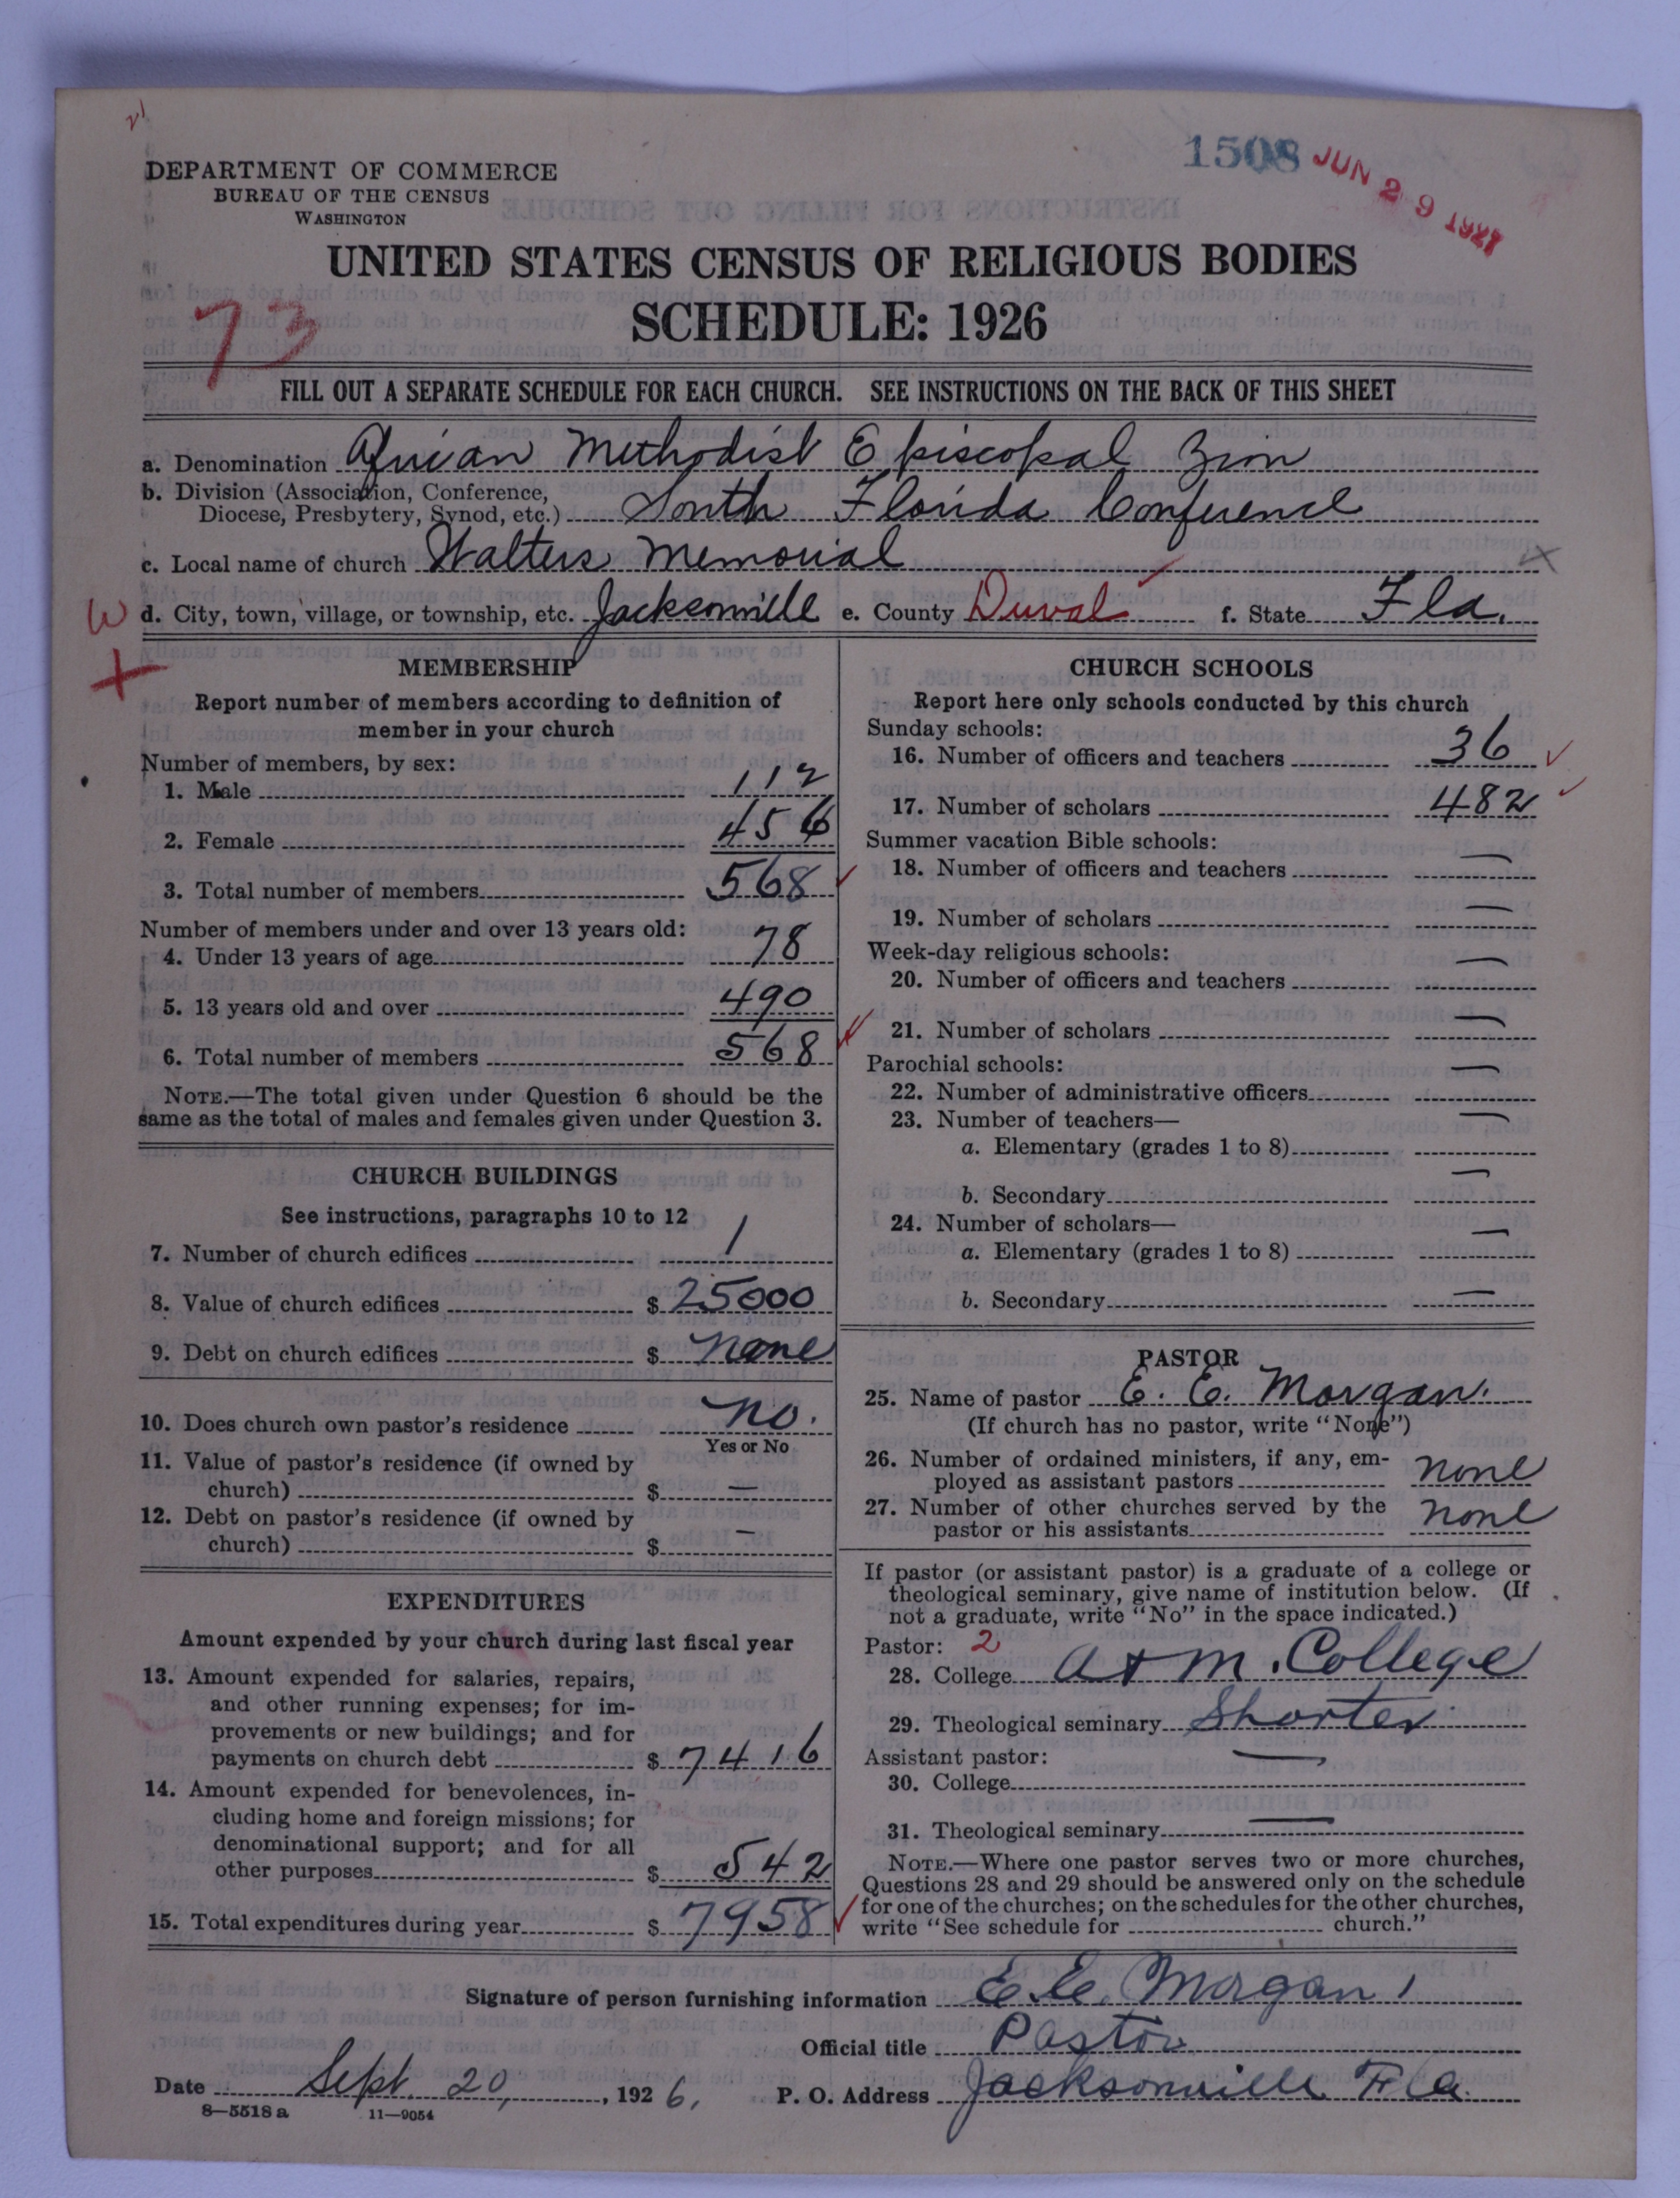 1508 JUN 29 1927
DEPARTMENT OF COMMERCE
BUREAU OF THE CENSUS
WASHINGTON
UNITED STATES CENSUS OF RELIGIOUS BODIES
SCHEDULE: 1926
73
FILL OUT A SEPARATE SCHEDULE FOR EACH CHURCH. SEE INSTRUCTIONS ON THE BACK OF THIS SHEET
a. Denomination African Methodist Episcopal Zion
b. Division (Association, Conference,
Diocese, Presbytery, Synod, etc.) South Florida Conference
c. Local name of church Walters Memorial
d. City, town, village, or township, etc. Jacksonville e. County Duval f. State Fla.
MEMBERSHIP
Report number of members according to definition of
member in your church
Number of members, by sex:
1. Male 112
2. Female 456
3. Total number of members 568
Number of members under and over 13 years old:
4. Under 13 years of age 78
5. 13 years old and over 490
6. Total number of members 568
NOTE.—The total given under Question 6 should be the
same as the total of males and females given under Question 3.
CHURCH BUILDINGS
See instructions, paragraphs 10 to 12
7. Number of church edifices 1
8. Value of church edifices $ 25000
9. Debt on church edifices $ none
10. Does church own pastor's residence no.
Yes or No
11. Value of pastor's residence (if owned by
church) $ —
12. Debt on pastor's residence (if owned by
church) $ —
EXPENDITURES
Amount expended by your church during last fiscal year
13. Amount expended for salaries, repairs,
and other running expenses; for im-
provements or new buildings; and for
payments on church debt $ 7416
14. Amount expended for benevolences, in-
cluding home and foreign missions; for
denominational support; and for all
other purposes $ 542
15. Total expenditures during year $ 7958
CHURCH SCHOOLS
Report here only schools conducted by this church
Sunday schools:
16. Number of officers and teachers 36
17. Number of scholars 482
Summer vacation Bible schools:
18. Number of officers and teachers —
19. Number of scholars —
Week-day religious schools:
20. Number of officers and teachers —
21. Number of scholars —
Parochial schools:
22. Number of administrative officers —
23. Number of teachers—
a. Elementary (grades 1 to 8) —
b. Secondary —
24. Number of scholars—
a. Elementary (grades 1 to 8) —
b. Secondary —
PASTOR
25. Name of pastor E. E. Morgan.
(If church has no pastor, write "None")
26. Number of ordained ministers, if any, em-
ployed as assistant pastors none
27. Number of other churches served by the
pastor or his assistants none
If pastor (or assistant pastor) is a graduate of a college or
theological seminary, give name of institution below. (If
not a graduate, write "No" in the space indicated.)
Pastor: 2
28. College A + M. College
29. Theological seminary Shorter
Assistant pastor:
30. College —
31. Theological seminary —
NOTE.—Where one pastor serves two or more churches,
Questions 28 and 29 should be answered only on the schedule
for one of the churches; on the schedules for the other churches,
write "See schedule for church."
Signature of person furnishing information E. E. Morgan
Official title Pastor
Date Sept. 20, 1926, P. O. Address Jacksonville Fla.
8—5518 a 11—9054